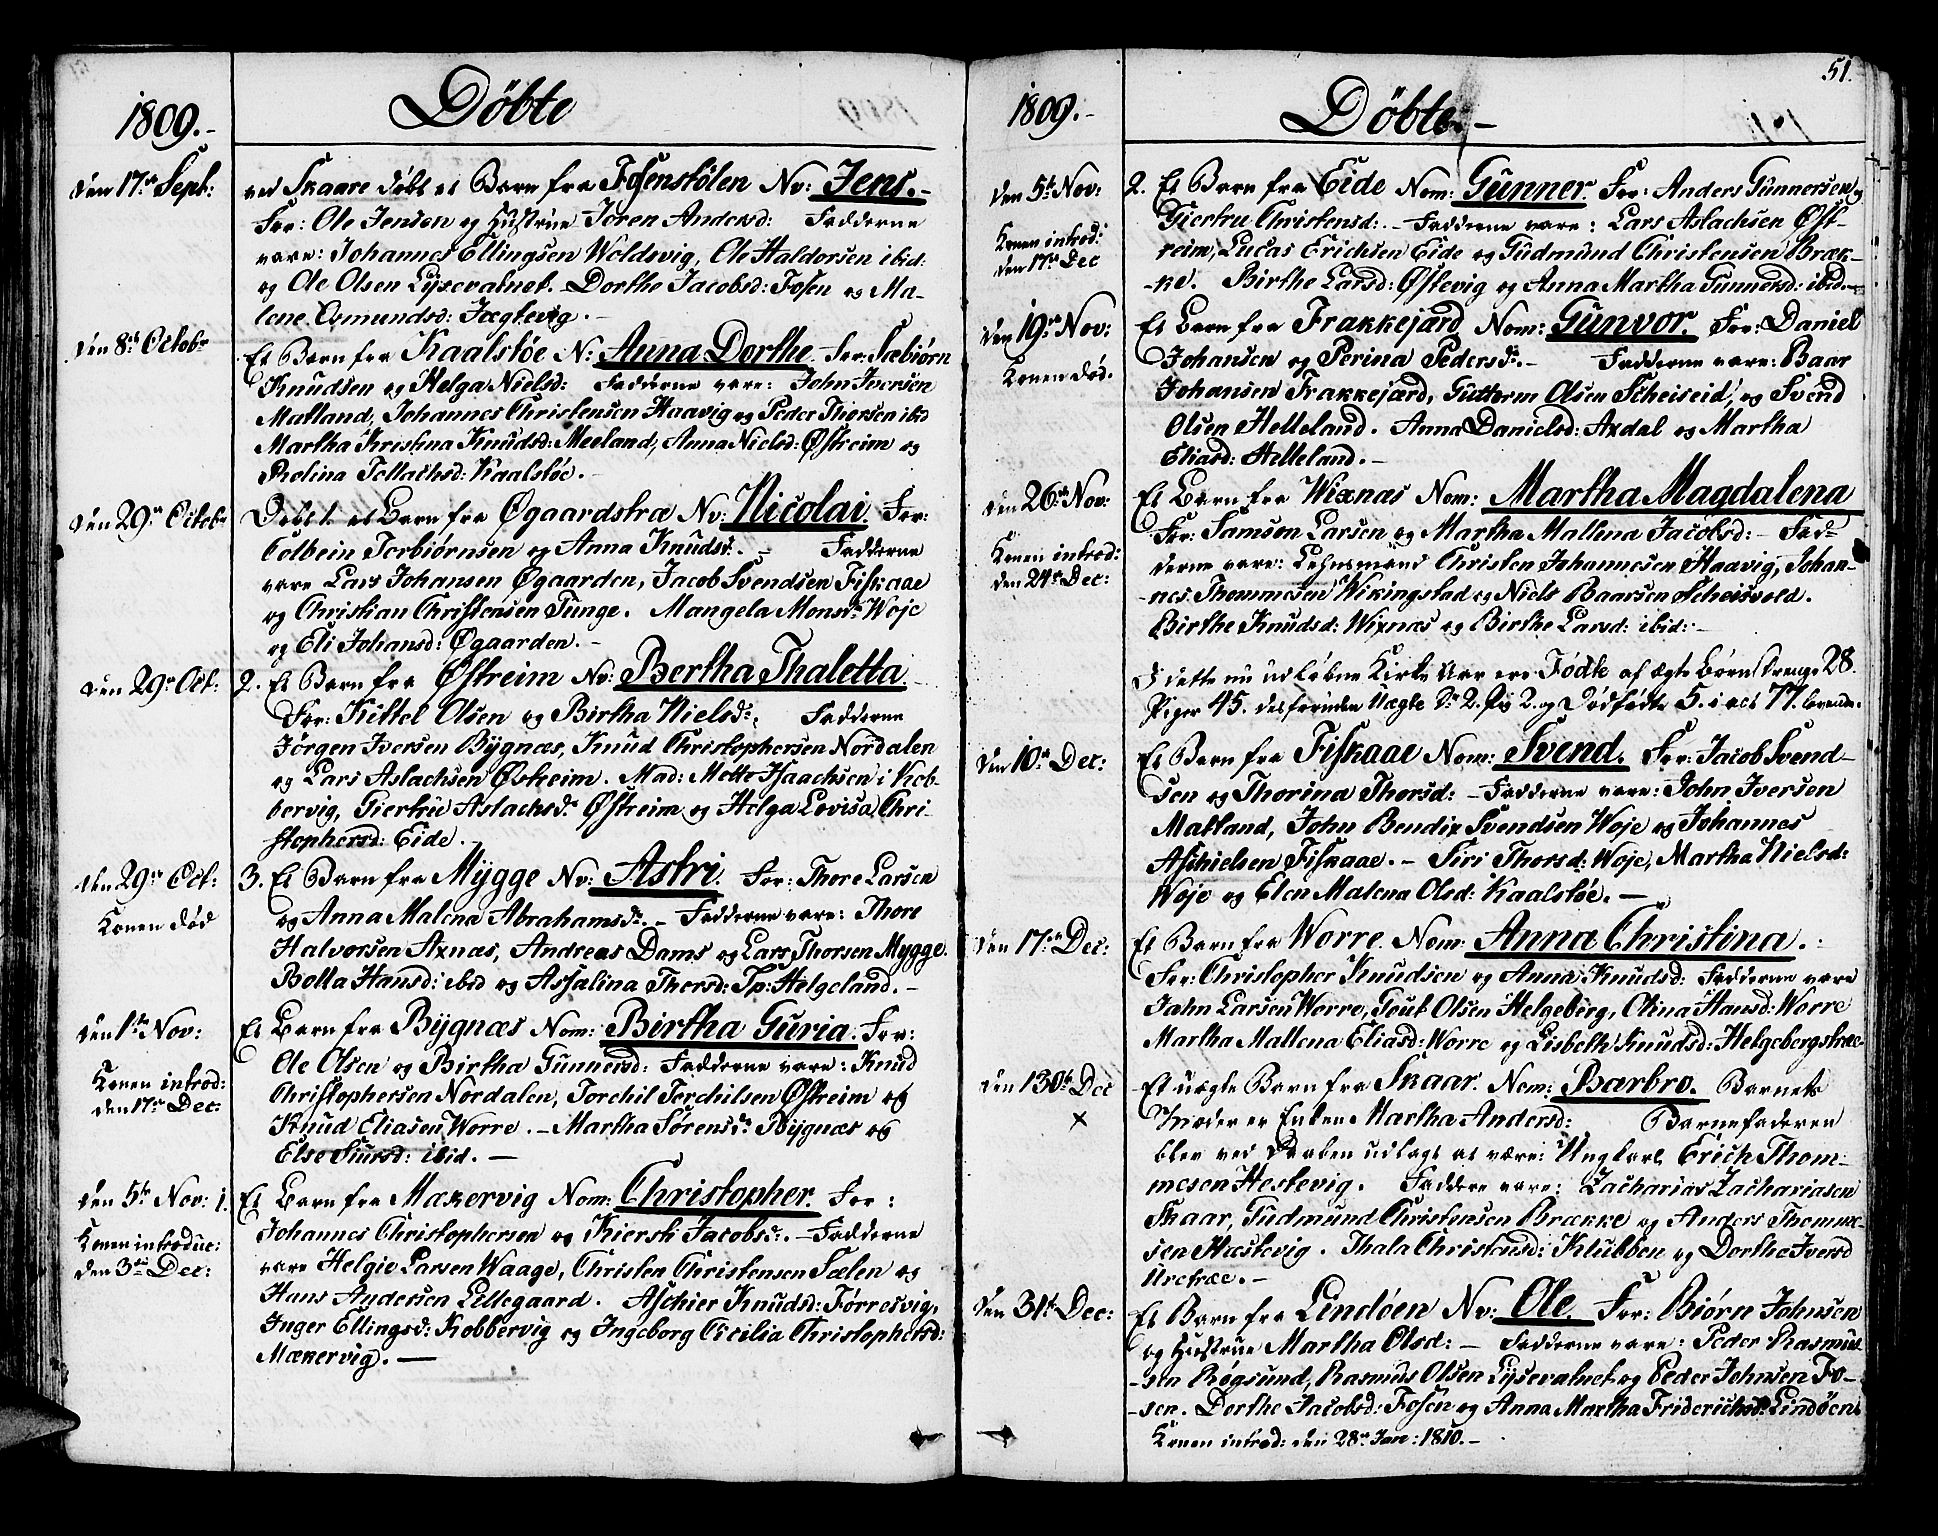 1809.-
Döbte
den 17de Sept:
ved Skaare døbt et Barn fra Fosenstölen Nv: Jens.-
For: Ole Jensen og Hustrue Joren Andersd: Fadderne
vare: Johannes Ellingsen Woldsvig, Ole Haldorsen ibid:
og Ole Olsen Lysevatnet. Dorthe Jacobsd: Fosen og Ma-
lene Osmundsd: Jægtevig.-
den 8de Octobr
Et Barn fra Kaalstöe N: Anna Dorthe. For: Sæbiörn
Knudsen og Helga Nielsd: Fadderne vare: John Iversen
Matland, Johannes Christensen Haavig og Peder Thorsen ibid
Martha Kristina Knudsd: Meeland, Anna Nielsd: Østreim og
Rolina Tollachsd: Kaalstöe.-
den 29de Octobr
Døbt et Barn fra Øgaardstræ Nv: Nicolai. For:
Colbein Torbiörnsen og Anna Knudsdr.- Fadderne
vare Lars Johansen Øgaarden, Jacob Svendsen Fiskaae
og Christian Christensen Tunge. Mangela Monsdr Woje
og Eli Johansd: Øgaarden.-
den 29de Oct:
2. Et Barn fra Østreim Nv: Bertha Thaletta.-
For: Kittel Olsen og Birtha Nielsdr. Fadderne
Jörgen Iversen Bygnæs, Knud Christophersen Nordalen
og Lars Aslachsen Østreim. Mad: Mette Isaachsen i Kob-
bervig, Giertru Aslachsdr Østreim og Helga Lovisa Chri-
stophersd: Eide.-
den 29de Oct:
Konen død
3. Et Barn fra Mygge Nv: Astri. For: Thore Larsen
og Anna Malena Abrahamsdr.- Fadderne vare: Thore
Halvorsen Axnæs, Andreas Dams og Lars Thorsen Mygge.
Bolla Hansd: ibid og Assalina Thorsd: Sp: Helgeland.-
den 1ste Nov:
Konen introd:
den 17de Dec:
Et Barn fra Bygnæs Nom: Birtha Guria. For:
Ole Olsen og Birtha Gunnersd: Fadderne vare: Knud
Christophersen Nordalen, Torchil Torchilsen Østreim og
Knud Eliasen Worre.- Martha Sörensdr Bygnæs og
Else Siursd: ibid.-
den 5te Nov:
Konen introduc:
den 3die Dec:
1. Et Barn fra Mækervig Nom: Christopher. For:
Johannes Christophersen og Kiersti Jacobsdr.- Fadderne
vare Helgie Larsen Waage, Christen Christensen Sælen og
Hans Andersen Lillegaard. Aschier Knudsd: Førresvig,
Inger Ellingsd: Kobbervig og Ingeborg Cicilia Christophersd:
Mækervig.-
51.
1809.-
Döbte.-
den 5te Nov:
Konen introd:
den 17de Dec
2. Et Barn fra Eide Nom: Gunner. For: Anders Gunnersen og
Giertru Christensd:- Fadderne vare: Lars Aslachsen Øst-
reim, Lucas Erichsen Eide og Gudmund Christensen Bræk-
-ke. Birthe Larsd: Østevig og Anna Martha Gunnersd: ibid.-
den 19de Nov:
Konen død.
Et Barn fra Frakkejærd Nom: Gunvor. For: Daniel
Johansen og Perina Pedersdr.- Fadderne vare: Baar
Johansen Frakkejærd, Guttorm Olsen Scheiseid, og Svend
Olsen Helleland. Anna Danielsd: Axdal og Martha
Eliasd: Helleland.-
den 26de Nov:
Konen introd:
den 24de Dec:
Et Barn fra Wixnæs Nom: Martha Magdalena
For: Samson Larsen og Martha Mallena Jacobsd:- Fad-
derne vare: Lehnsmand Christen Johannesen Haavig, Johan-
-nes Thommesen Wikingstad og Niels Baarsen Scheisvold.
Birthe Knudsd: Wixnæs og Birthe Larsd: ibid:-
I dette nu udløbne Kirke Aar ere Födte af ægte Børn Drenge 28.
Piger 45. desforuden Uægte Dr 2. Pig 2. og Dödfödte 5. i alt 77. levende.
den 10de Dec:
Et Barn fra Fiskaae Nom: Svend. For: Jacob Svend-
sen og Thorina Thorsd:- Fadderne vare: John Iversen
Matland, John Bendix Svendsen Woje og Johannes
Aschielsen Fiskaae.- Siri Thorsd: Woje, Martha Nielsd:
Woje og Elen Malena Olsd: Kaalstöe.-
den 17de Dec:
Et Barn fra Worre. Nom: Anna Christina.
For: Christopher Knudsen og Anna Knudsd: Fadderne vare
Jahn Larsen Worre, Gout Olsen Helgeberg, Olina Hansd: Worre
Martha Mallena Eliasd: Worre og Lisbeth Knudsd: Helgebergstræe
den 130de Dec
×
Et uægte Barn fra Skaar. Nom: Barbro. Barnets
Moder er Enken Martha Andersd: Barnefaderen
blev ved Daaben udlagt at være: Ungkarl Erich Thom-
mesen Hestevig. Faddere vare: Zacharias Zachariasen
Skaar, Gudmund Christensen Brække og Anders Thomme-
sen Hæstevig. Thala Christensd: Klubben og Dorthe Iversd
Uretræe.-
den 31te Dec:
Et Barn fra Lindöen Nv: Ole. For: Biørn Johnsen
og Hustrue Martha Olsd:- Fadderne vare: Peder Rasmus-
-sen Røgsund, Rasmus Olsen Lysevatnet og Peder Johnsen Fo-
-sen. Dorthe Jacobsd: Fosen og Anna Martha Friderichsd: Lindöen.
Konen introd: den 28de Jan: 1810.-